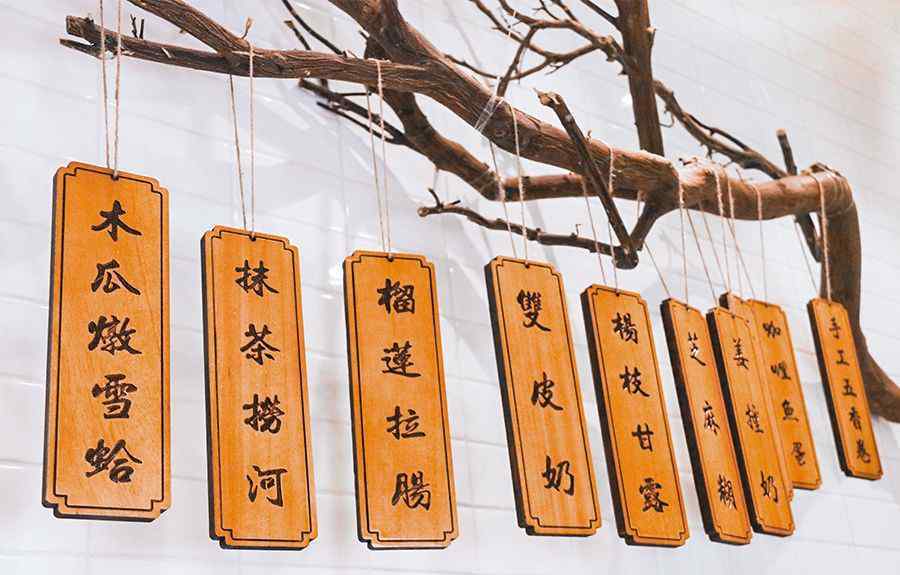 木瓜燉雪蛤
抹茶撈河
榴蓮拉腸
雙皮奶
楊枝甘露
芝麻糊
姜撞奶
咖喱魚蛋
手工五香卷